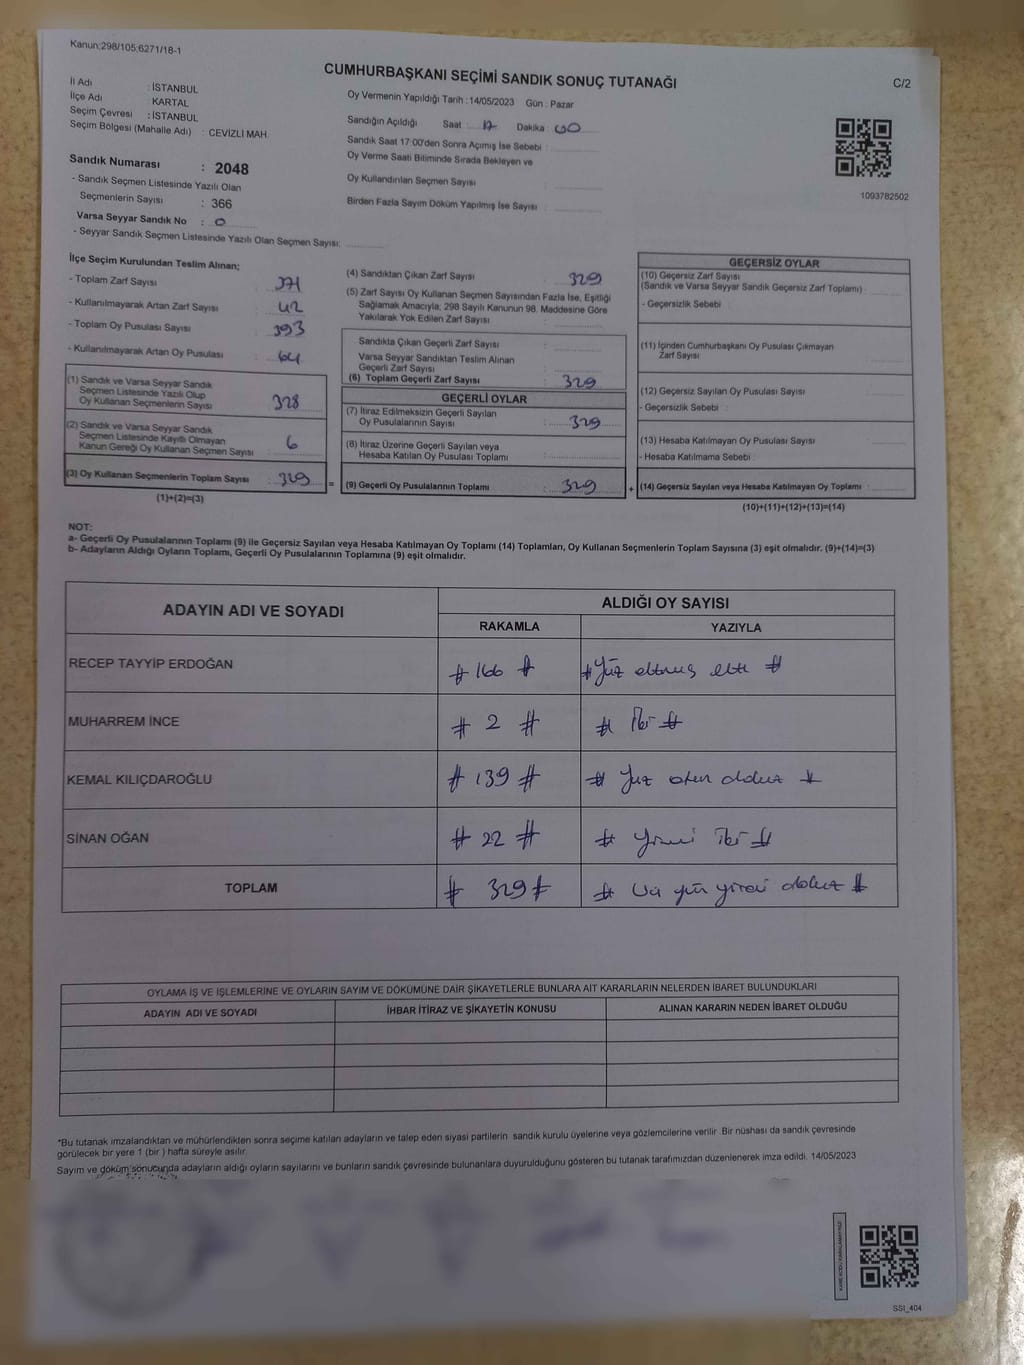 Kanun;298/105;6271/18-1
CUMHURBAŞKANI SEÇİMİ SANDIK SONUÇ TUTANAĞI
C/2
İl Adı : İSTANBUL
İlçe Adı : KARTAL
Seçim Çevresi : İSTANBUL
Seçim Bölgesi (Mahalle Adı) : CEVİZLİ MAH.
Oy Vermenin Yapıldığı Tarih : 14/05/2023 Gün : Pazar
Sandığın Açıldığı Saat : 17 Dakika :
Sandık Saat 17:00'den Sonra Açılmış İse Sebebi :
Oy Verme Saati Bitiminde Sırada Bekleyen ve
Oy Kullandırılan Seçmen Sayısı :
Birden Fazla Sayım Döküm Yapılmış İse Sayısı :
1093782502
Sandık Numarası : 2048
- Sandık Seçmen Listesinde Yazılı Olan
Seçmenlerin Sayısı : 366
Varsa Seyyar Sandık No : 0
- Seyyar Sandık Seçmen Listesinde Yazılı Olan Seçmen Sayısı:
İlçe Seçim Kurulundan Teslim Alınan;
- Toplam Zarf Sayısı : 371
- Kullanılmayarak Artan Zarf Sayısı : 42
- Toplam Oy Pusulası Sayısı : 393
- Kullanılmayarak Artan Oy Pusulası : 64
(1) Sandık ve Varsa Seyyar Sandık
Seçmen Listesinde Yazılı Olup
Oy Kullanan Seçmenlerin Sayısı : 328
(2) Sandık ve Varsa Seyyar Sandık
Seçmen Listesinde Kayıtlı Olmayan
Kanun Gereği Oy Kullanan Seçmen Sayısı :
(3) Oy Kullanan Seçmenlerin Toplam Sayısı : 329
(1)+(2)=(3)
=
(4) Sandıktan Çıkan Zarf Sayısı : 329
(5) Zarf Sayısı Oy Kullanan Seçmen Sayısından Fazla İse, Eşitliği
Sağlamak Amacıyla; 298 Sayılı Kanunun 98. Maddesine Göre
Yakılarak Yok Edilen Zarf Sayısı :
Sandıkta Çıkan Geçerli Zarf Sayısı :
Varsa Seyyar Sandıktan Teslim Alınan
Geçerli Zarf Sayısı :
(6) Toplam Geçerli Zarf Sayısı : 329
GEÇERLİ OYLAR
(7) İtiraz Edilmeksizin Geçerli Sayılan
Oy Pusulalarının Sayısı : 329
(8) İtiraz Üzerine Geçerli Sayılan veya
Hesaba Katılan Oy Pusulası Toplamı :
(9) Geçerli Oy Pusulalarının Toplamı : 329
+
GEÇERSİZ OYLAR
(10) Geçersiz Zarf Sayısı
(Sandık ve Varsa Seyyar Sandık Geçersiz Zarf Toplamı) :
- Geçersizlik Sebebi :
(11) İçinden Cumhurbaşkanı Oy Pusulası Çıkmayan
Zarf Sayısı :
(12) Geçersiz Sayılan Oy Pusulası Sayısı :
- Geçersizlik Sebebi :
(13) Hesaba Katılmayan Oy Pusulası Sayısı :
- Hesaba Katılmama Sebebi :
(14) Geçersiz Sayılan veya Hesaba Katılmayan Oy Toplamı :
(10)+(11)+(12)+(13)=(14)
NOT:
a- Geçerli Oy Pusulalarının Toplamı (9) ile Geçersiz Sayılan veya Hesaba Katılmayan Oy Toplamı (14) Toplamları, Oy Kullanan Seçmenlerin Toplam Sayısına (3) eşit olmalıdır. (9)+(14)=(3)
b- Adayların Aldığı Oyların Toplamı, Geçerli Oy Pusulalarının Toplamına (9) eşit olmalıdır.
ADAYIN ADI VE SOYADI
ALDIĞI OY SAYISI
RAKAMLA YAZIYLA
RECEP TAYYİP ERDOĞAN # 166 # # Yüz altmış altı #
MUHARREM İNCE # 2 # # İki #
KEMAL KILIÇDAROĞLU # 139 # # Yüz otuz dokuz #
SİNAN OĞAN # 22 # # Yirmi iki #
TOPLAM # 329 # # Üç yüz yirmi dokuz #
OYLAMA İŞ VE İŞLEMLERİNE VE OYLARIN SAYIM VE DÖKÜMÜNE DAİR ŞİKAYETLERLE BUNLARA AİT KARARLARIN NELERDEN İBARET BULUNDUKLARI
ADAYIN ADI VE SOYADI İHBAR İTİRAZ VE ŞİKAYETİN KONUSU ALINAN KARARIN NEDEN İBARET OLDUĞU
*Bu tutanak imzalandıktan ve mühürlendikten sonra seçime katılan adayların ve talep eden siyasi partilerin sandık kurulu üyelerine veya gözlemcilerine verilir. Bir nüshası da sandık çevresinde
görülecek bir yere 1 (bir ) hafta süreyle asılır.
Sayım ve döküm sonucunda adayların aldığı oyların sayılarını ve bunların sandık çevresinde bulunanlara duyurulduğunu gösteren bu tutanak tarafımızdan düzenlenerek imza edildi. 14/05/2023
KARE KODU KARALAMAYINIZ!
SSI_404